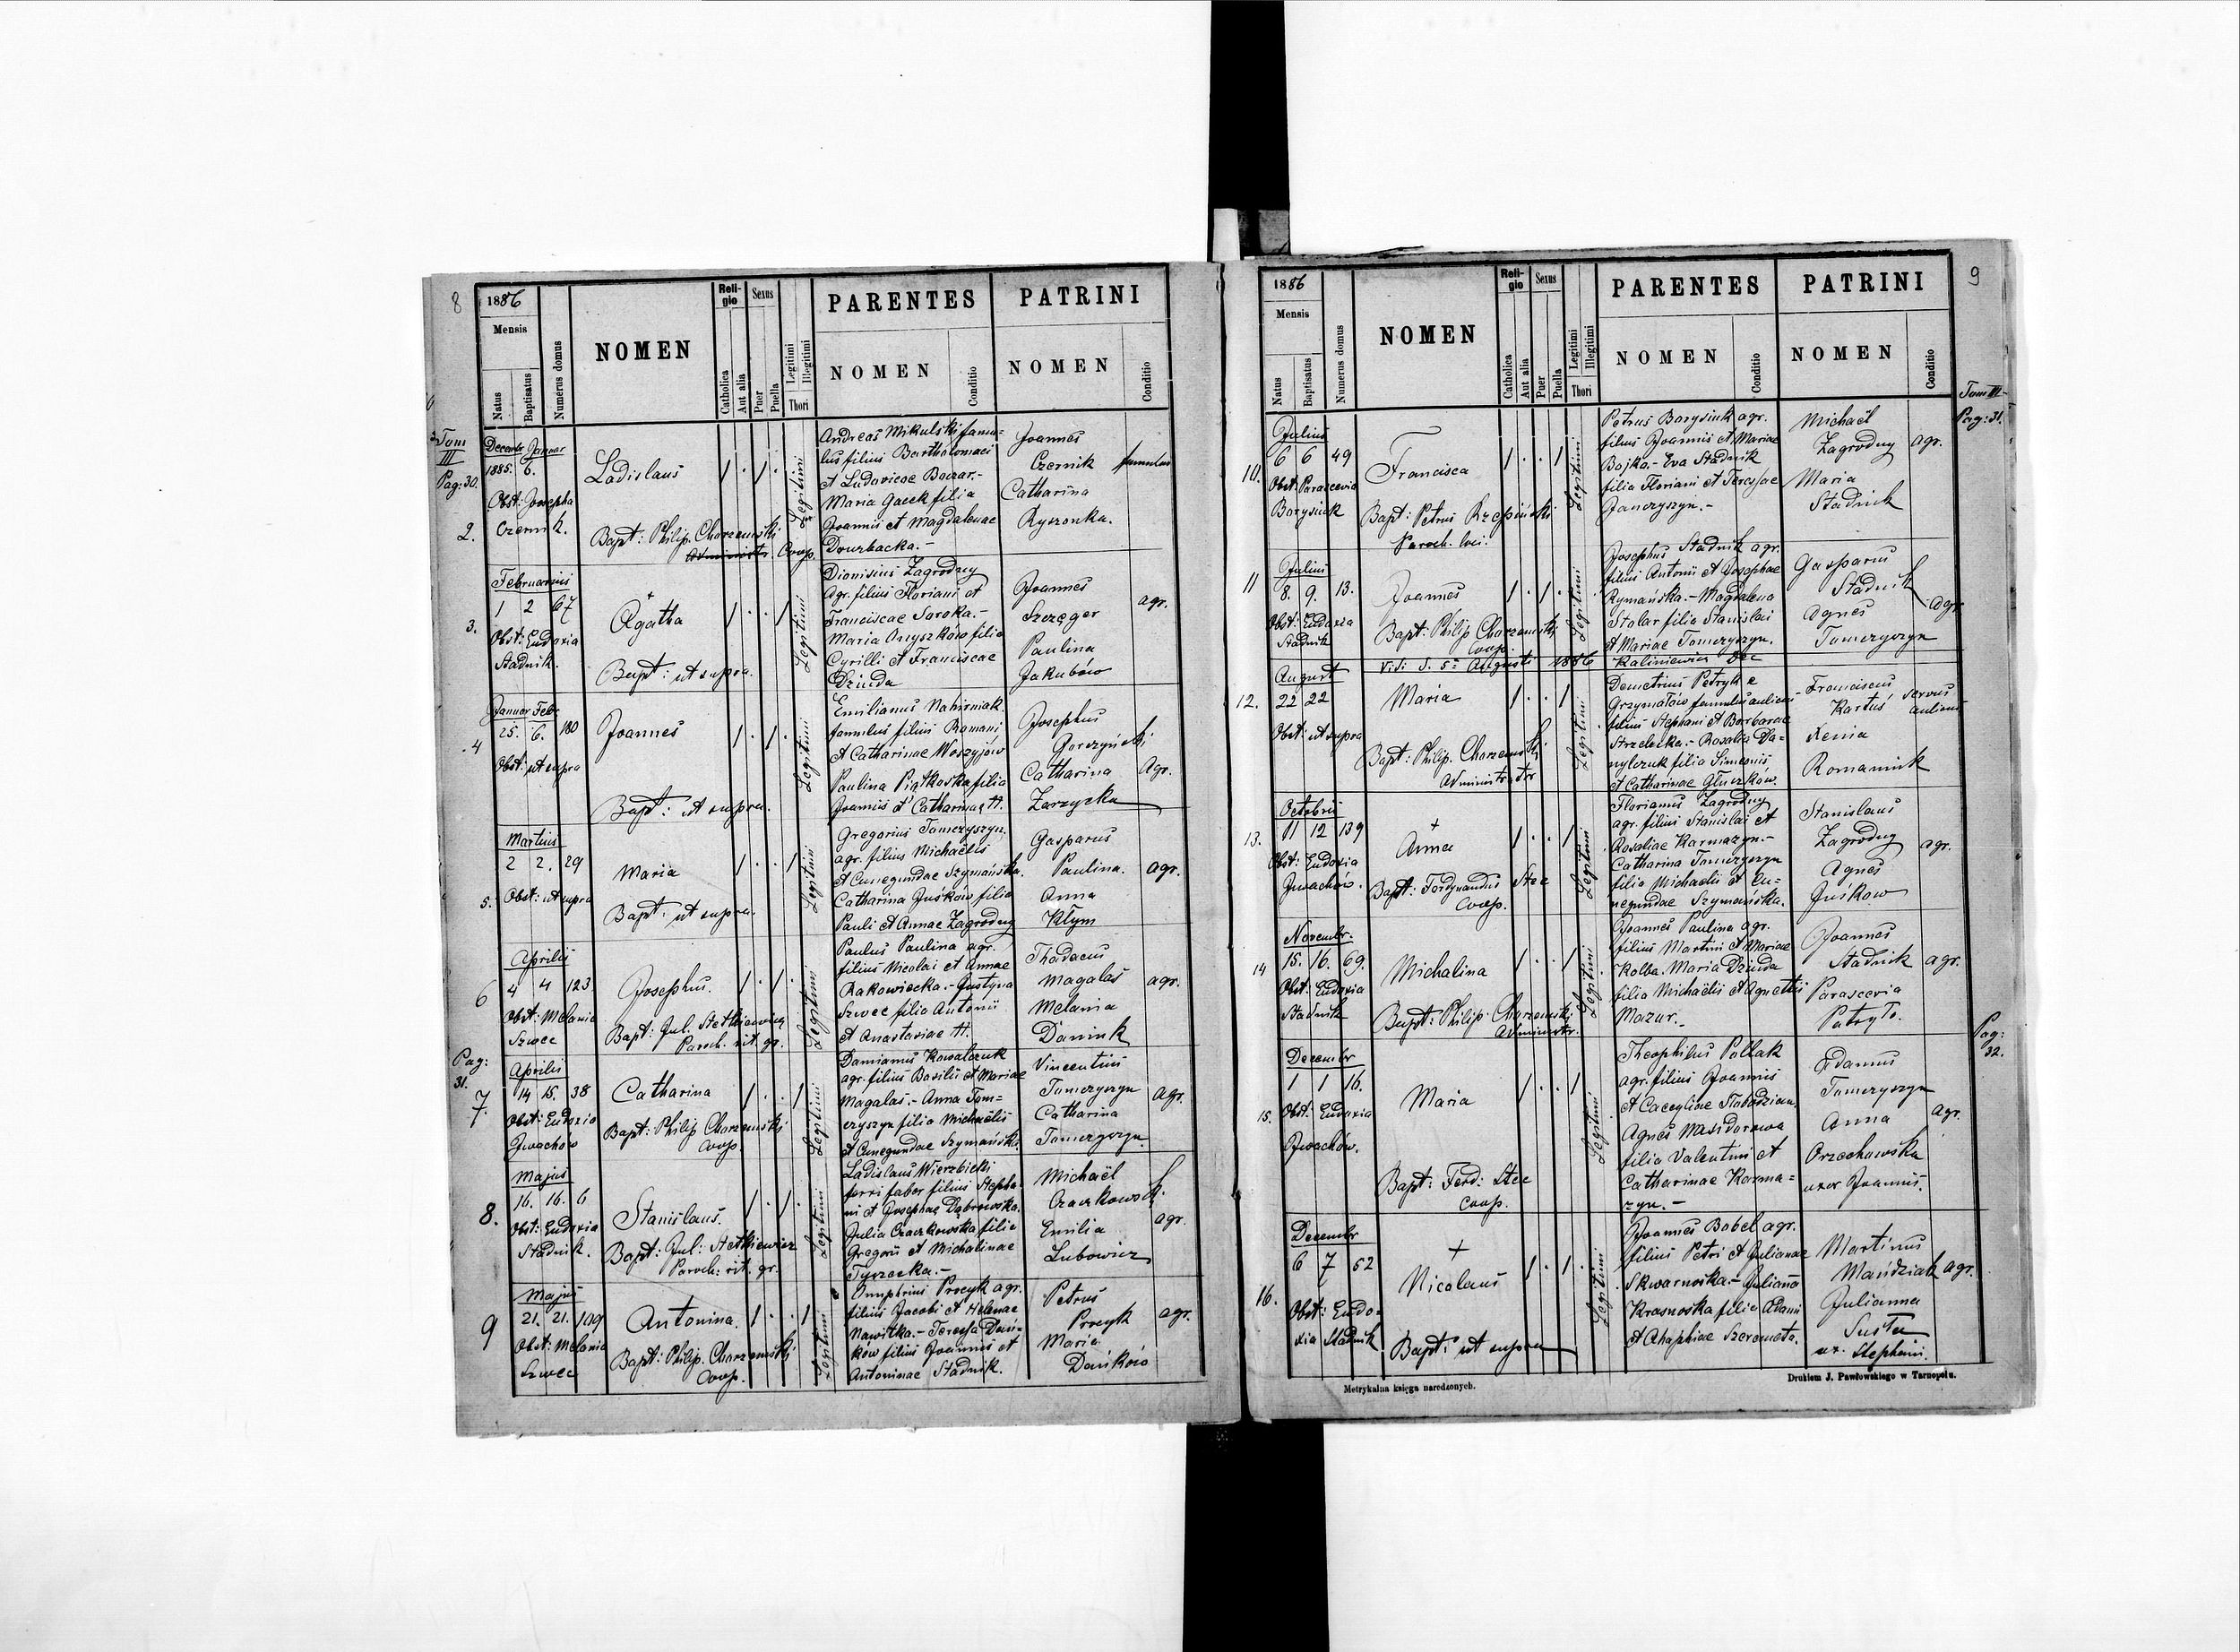 8
1886
Mensis
Natus
Baptisatus
Numerus domus
NOMEN
Religio
Catholica
Aut alia
Sexus
Puer
Puella
Legitimi
Illegitimi
Thori
PARENTES
NOMEN
Conditio
PATRINI
NOMEN
Conditio
Tom
III
Pag: 30.
2.
Decembr Januar
1885. 6.
Obst: Josepha
Czernik.
Ladislaus
1 · 1 ·
Bapt: Philip. Charzewski
Administr. Coop.
Legitimi
Andreas Mikulski famu=
lus filius Bartholomaei
et Ludovicae Boczar.-
Maria Gacek filia
Joannis et Magdalenae
Dourbacka.-
Joannes
Czernik famulus
Catharina
Ryszonka.
3.
Februarius
1 2 67
Obst: Eudoxia
Stadnik.
+
Agatha
1 · · 1
Bapt: ut supra.
Legitimi
Dionisius Zagrodny
Agr. filius Floriani et
Franciscae Soroka.-
Maria Onyszków filia
Cyrilli et Franciscae
Dziuda
Joannes
Szczęger
Paulina
Jakubów
agr.
4
Januar Feb.
25. 6. 180
Obst: ut supra
Joannes
1 · 1 ·
Bapt: ut supra.
Legitimi
Emilianus Nahirniak
famulus filius Romani
et Catharinae Woszyjów
Paulina Piątkoska filia
Joannis et Catharinae H.
Josephus
Gorczyński
Catharina
Zarzycka
Agr.
5.
Martius
2 2. 29
Obst: ut supra
Maria
1 · · 1
Bapt: ut supra.
Legitimi
Gregorius Tomczyszyn,
agr. filius Michaëlis
et Cunegundae Szymańska.
Catharina Juśków filia
Pauli et Annae Zagrodny
Gasparus
Paulina.
Anna
Kłym
agr.
6
Aprilis
4 4 123
Obst: Melania
Szwec
Josephus.
1 · 1 ·
Bapt: Jul. Stetkiewicz
Paroch. rit. gr.
Legitimi
Paulus Paulina agr.
filius Nicolai et Annae
Rakowiecka.- Justyna
Szwec filia Antonii
et Anastasiae H.
Thadaeus
Magalas
Melania
Daniuk
agr.
Pag:
31.
7.
Aprilis
14 15. 38
Obst: Eudoxia
Jwachów
Catharina
1 · · 1
Bapt: Philip Charzewski
Coop.
Legitimi
Damianus Kowalczuk
agr. filius Basilii et Mariae
Magalas.- Anna Tom=
czyszyn filia Michaëlis
et Cunegundae Szymańska.
Vincentius
Tomczyszyn
Catharina
Tomczyszyn
agr.
8.
Majus
16. 16. 6
Obst: Eudoxia
Stadnik.
Stanislaus.
1 · 1 ·
Bapt: Jul: Stetkiewicz
Paroch: rit. gr.
Legitimi
Ladislaus Wierzbicki
ferri faber filius Stepha=
ni et Josephae Dąbrowska.
Julia Czaczkowska filia
Gregorii et Michalinae
Tyszecka.-
Michaël
Czaczkowsk.
Emilia
Lubowicz
agr.
9
Majus
21. 21. 109
Obst: Melania
Szwec
Antonina.
1 · · 1
Bapt: Philip. Charzewski
Coop.
Legitimi
Onuphrius Procyk agr.
filius Jacobi et Helenae
Nawitka.- Teressa Dań=
ków filius Joannis et
Antoninae Stadnik.
Petrus
Procyk
Maria
Dańków
agr.
9
1886
Mensis
Natus
Baptisatus
Numerus domus
NOMEN
Religio
Catholica
Aut alia
Sexus
Puer
Puella
Legitimi
Illegitimi
Thori
PARENTES
NOMEN
Conditio
PATRINI
NOMEN
Conditio
Tom III.
Pag: 31.
10.
Julius
6 6 49
Obst: Parascevia
Borysiuk
Francisca
1 · · 1
Bapt: Petrus Rzepiński
Paroch. loci.
Legitimi
Petrus Borysiuk agr.
filius Joannis et Mariae
Bojko.- Eva Stadnik
filia Floriani et Teressae
Janczyszyn.-
Michaël
Zagrodny
Maria
Stadnik
agr.
11
Julius
8. 9. 13.
Obst: Eudoxia
Stadnik
Joannes
1 · 1 ·
Bapt: Philip Charzewski
Coop.
Legitimi
Josephus Stadnik agr.
filius Antonii et Josephae
Rymańska.- Magdalena
Stolar filia Stanislai
et Mariae Tomczyszyn.
Gasparus
Stadnik
Agnes
Tomczyszyn
agr.
Vidi d. 5 Augusti 1886 Kaliniewicz Dec
12.
August
22 22
Obst: ut supra
Maria
1 · · 1
Bapt: Philip. Charzewski
Administrator
Legitimi
Demetrius Petryk e
Grzymałów famulus aulicus
filius Stephani et Barbarae
Strzelecka.- Rosalia Da=
nylczuk filia Simeonis
et Catharinae Głuszków.
Franciscus
Kartuś
Xenia
Romaniuk
servus
aulicus
13.
Octobris
11 12 139
Obst: Eudoxia
Jwachów.
+
Anna
1 · · 1
Bapt: Ferdynandus Stec
Coop.
Legitimi
Florianus Zagrodny
agr. filius Stanislai et
Rosaliae Karmazyn.-
Catharina Tomczyszyn
filia Michaelis et Cu=
negundae Szymańska.
Stanislaus
Zagrodny
Agnes
Juskow
agr.
14
Novembr.
15. 16. 69.
Obst: Eudoxia
Stadnik
Michalina
1 · · 1
Bapt: Philip. Charzewski
Administr.
Legitimi
Joannes Paulina agr.
filius Martini et Mariae
Kolba. Maria Dziuda
filia Michaëlis et Agnettis
Mazur.-
Joannes
Stadnik
Parascevia
Patryło.
agr.
Pag:
32.
15.
Decembr
1 1 16.
Obst: Eudoxia
Jwachów.
Maria
1 · · 1
Bapt: Ferd: Stec
Coop.
Legitimi
Theophilus Pollak
agr. filius Joannis
et Caecyliae
Agnes Masidorowa
filia Valentini et
Catharinae Karma=
zyn.-
Adamus
Tomczyszyn
Anna
Orzechowska
uxor Joannis.
agr.
16.
Decembr
6 7 52
Obst: Eudo=
xia Stadnik
+
Nicolaus
1 · 1 ·
Bapt: ut supra
Legitimi
Joannes Babel agr.
filius Petri et Julianae
Skwarnoska.- Juliana
Krasnoska filia Adami
et Ahaphiae Szeremeta.
Martinus
Mańdziak
Julianna
Susła
ux. Stephani.
agr.
Metrykalna księga narodzonych.
Drukiem J. Pawłowskiego w Tarnopolu.